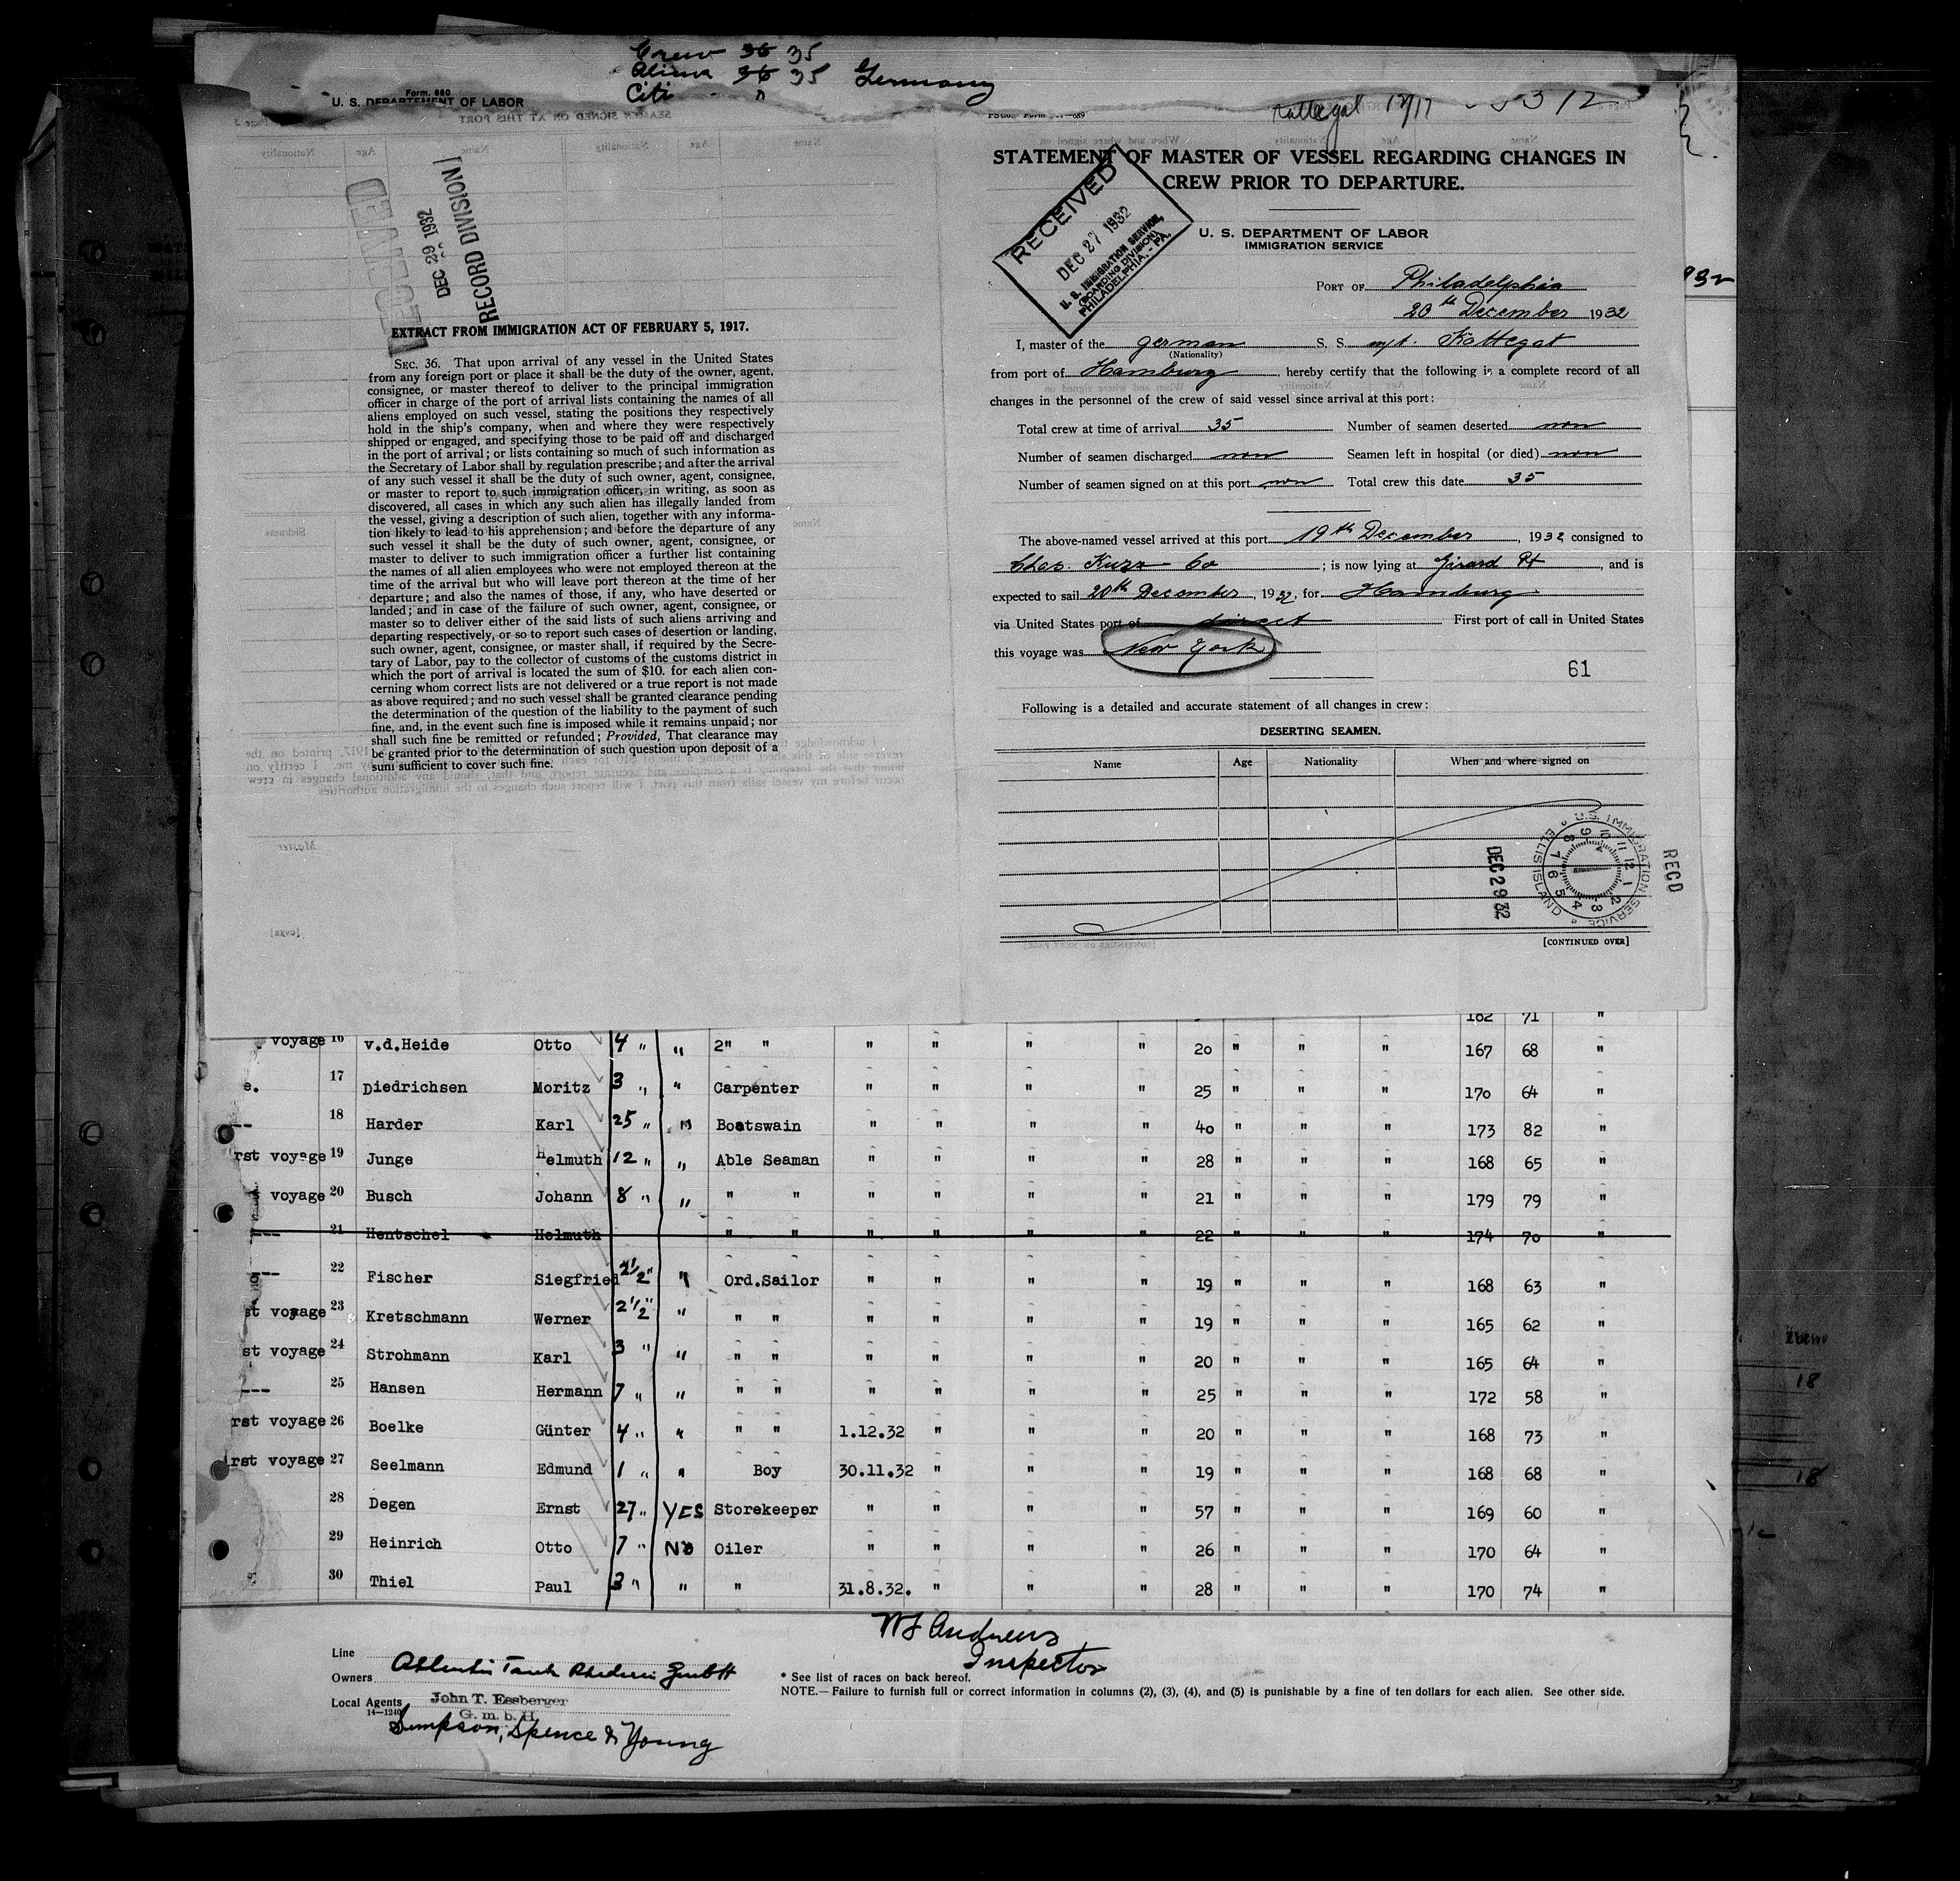 Crew 36 35
Aliens 36 35 Germany
Citi
Form 680
U. S. DEPARTMENT OF LABOR
RECEIVED
DEC 29 1932
RECORD DIVISION
EXTRACT FROM IMMIGRATION ACT OF FEBRUARY 5, 1917.
SEC. 36. That upon arrival of any vessel in the United States
from any foreign port or place it shall be the duty of the owner, agent,
consignee, or master thereof to deliver to the principal immigration
officer in charge of the port of arrival lists containing the names of all
aliens employed on such vessel, stating the positions they respectively
hold in the ship's company, when and where they were respectively
shipped or engaged, and specifying those to be paid off and discharged
in the port of arrival; or lists containing so much of such information as
the Secretary of Labor shall by regulation prescribe; and after the arrival
of any such vessel it shall be the duty of such owner, agent, consignee,
or master to report to such immigration officer, in writing, as soon as
discovered, all cases in which any such alien has illegally landed from
the vessel, giving a description of such alien, together with any informa-
tion likely to lead to his apprehension; and before the departure of any
such vessel it shall be the duty of such owner, agent, consignee, or
master to deliver to such immigration officer a further list containing
the names of all alien employees who were not employed thereon at the
time of the arrival but who will leave port thereon at the time of her
departure; and also the names of those, if any, who have deserted or
landed; and in case of the failure of such owner, agent, consignee, or
master so to deliver either of the said lists of such aliens arriving and
departing respectively, or so to report such cases of desertion or landing,
such owner, agent, consignee, or master shall, if required by the Secre-
tary of Labor, pay to the collector of customs of the customs district in
which the port of arrival is located the sum of $10. for each alien con-
cerning whom correct lists are not delivered or a true report is not made
as above required; and no such vessel shall be granted clearance pending
the determination of the question of the liability to the payment of such
fine, and, in the event such fine is imposed while it remains unpaid; nor
shall such fine be remitted or refunded; Provided, That clearance may
be granted prior to the determination of such question upon deposit of a
sum sufficient to cover such fine.
Kattegat 12/17
STATEMENT OF MASTER OF VESSEL REGARDING CHANGES IN
CREW PRIOR TO DEPARTURE.
RECEIVED
DEC 27 1932
U. S. IMMIGRATION SERVICE,
(BOARDING DIVISION)
PHILADELPHIA, - PA.
U. S. DEPARTMENT OF LABOR
IMMIGRATION SERVICE
PORT OF Philadelphia
20th December 1932
I, master of the german S. S. m/t. Kattegat
(Nationality)
from port of Hamburg, hereby certify that the following is a complete record of all
changes in the personnel of the crew of said vessel since arrival at this port:
Total crew at time of arrival 35 Number of seamen deserted non
Number of seamen discharged non Seamen left in hospital (or died) non
Number of seamen signed on at this port non Total crew this date 35
The above-named vessel arrived at this port 19th December, 1932, consigned to
Chas. Kurz Co; is now lying at Girard Pt, and is
expected to sail 20th December, 1932, for Hamburg
via United States port of direct First port of call in United States
this voyage was New York
61
Following is a detailed and accurate statement of all changes in crew:
DESERTING SEAMEN.
Name Age Nationality When and where signed on
DEC 29 32
U.S. IMMIGRATION SERVICE ELLIS ISLAND
RECD
[CONTINUED OVER]
162 71 "
voyage 16 v.d.Heide Otto 4 " " 2" " " " " " 20 " " " 167 68 "
e. 17 Diedrichsen Moritz 3 " " Carpenter " " " " 25 " " " 170 64 "
-- 18 Harder Karl 25 " " Boatswain " " " " 40 " " " 173 82 "
rst voyage 19 Junge Helmuth 12 " " Able Seaman " " " " 28 " " " 168 65 "
voyage 20 Busch Johann 8 " " " " " " " " 21 " " " 179 79 "
--- 21 Hentschel Helmuth " " " " " " 22 " " " 174 70 "
--- 22 Fischer Siegfried 2 1/2 " " Ord.Sailor " " " " 19 " " " 168 63 "
st voyage 23 Kretschmann Werner 2 1/2 " " " " " " " " 19 " " " 165 62 "
st voyage 24 Strohmann Karl 3 " " " " " " " " 20 " " " 165 64 "
--- 25 Hansen Hermann 7 " " " " " " " " 25 " " " 172 58 "
rst voyage 26 Boelke Günter 4 " " " " 1.12.32 " " " 20 " " " 168 73 "
irst voyage 27 Seelmann Edmund 1 " " Boy 30.11.32 " " " 19 " " " 168 68 "
28 Degen Ernst 27 " YES Storekeeper " " " " 57 " " " 169 60 "
29 Heinrich Otto 7 " NO Oiler " " " " 26 " " " 170 64 "
30 Thiel Paul 3 " " " 31.8.32. " " " 28 " " " 170 74 "
Andrews
Inspector
Line
Owners Atlantic Tank Rhederei GmbH
* See list of races on back hereof.
NOTE.—Failure to furnish full or correct information in columns (2), (3), (4), and (5) is punishable by a fine of ten dollars for each alien. See other side.
Local Agents John T. Essberger
14—1240 G. m. b. H.
Simpson, Spence & Young